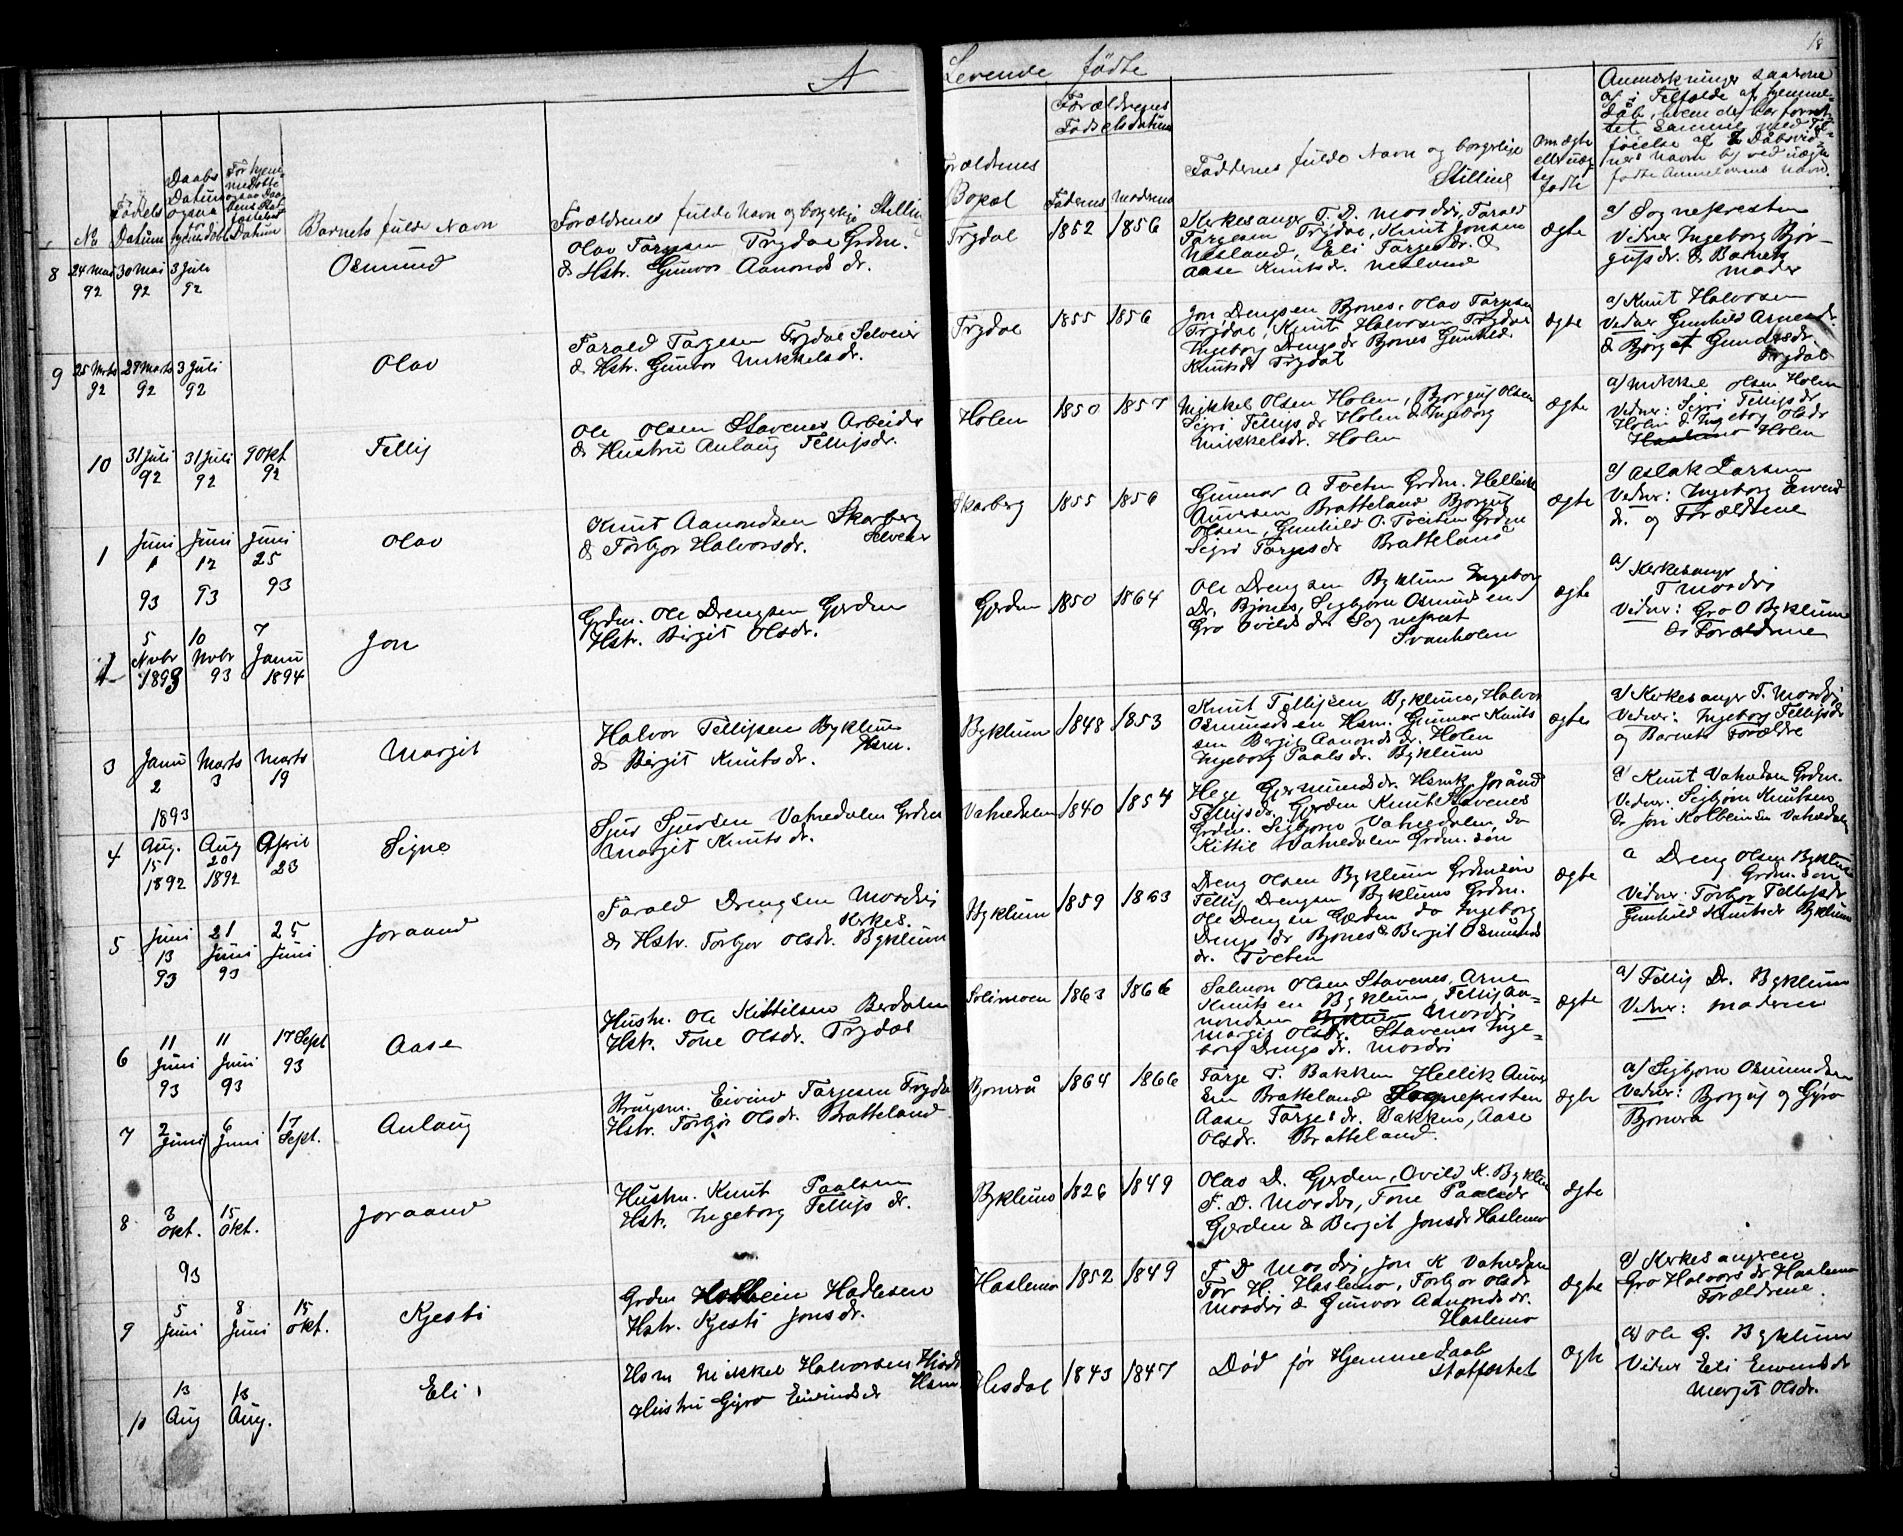 A
Levende fødte
18
No
Fødsels Datum
Daabs Datum ogsaa hjemmedøbt
Barnets fulde Navn
Forældrenes fulde Navn og borgerlige Stilling
Forældrenes Bopæl
Forældrenes Fødselsdatum
Faderens
Moderens
Faddernes fulde Navn og borgerlige Stilling
Om ægte eller uægte fødte
Anmærkninger saasom
8
24 Mai 92
30 Mai 92
3 Juli 92
Osmund
Olav Targesen Trydal Grdm.
& Hstr. Gunvor Aanonds dr.
Trydal
1852
1856
Kerkesanger T. D. Mosdøi, Tarald
Targesen Trydal, Knut Jonsen
Nesland, Eli Targesdr. &
Aase Knutsdr. Nesland
ægte
a/ Sognepresten
Vidner Ingeborg Bjør-
gufsdr. & Barnets
moder
9
25 Marts 92
29 Marts 92
3 Juli 92
Olav
Tarald Targesen Trydal Selveier
& Hstr. Gunvor Mikkelsdr.
Trydal
1855
1856
Jon Drengsen Bjones, Olav Targesen
Trydal, Knut Halvorsen Trydal
Ingeborg Drengsdr Bjones Gunhild
Knutsdr Trydal
ægte
a/ Knut Halvorsen
Vidner Gunhild
Trydal
10
31 Juli 92
31 Juli 92
9 Okt 92
Tellij
Ole Olsen Stavenes Arbeider
& Hustru Anlaug Tellijsdr.
Holen
1850
1857
Mikkel Olsen Holen, Bjorguf Olsen
Sigri Tellijsdr Holen & Ingeborg
Mikkelsdr. Holen
ægte
a/ Mikkel Olsen Holen
Vidner: Sigri Tellijsdr
Holen & Ingeborg Olsdr
Haslemo Holen
1
Juni 1 93
Juni 12 93
Juni 25 93
Olav
Knut Aanondsen Skarberg
& Torbjor Halvorsdr. Selveier
Skarberg
1855
1856
Gunnar A Tveiten Grdm. Hellik
Auversen Bratteland Bjorguf
Olsen, Gunhild O. Tveiten Grdm
Sigri Targesdr Bratteland
ægte
a/ Aslak Larsen
Vidner: Ingeborg Eivind
dr. og Forældrene
5 Nvbr 1893
10 Nvbr 93
7 Janu 1894
Jon
Grdm. Ole Drengsen Gjerden
Hstr. Birgit Olsdr.
Gjerden
1850
1864
Ole Drengsen Byklum Ingeborg
Dr. Bjones, Sigbjorn Osmundsen
Gro Ovilds dr Sogneprest
Svanholm
ægte
a/ Kerkesanger
T Mosdøi
Vidner: Gro O Byklum
& Forældrene
3
Janu 2 1893
Marts 3
Marts 19
Margit
Halvor Tellijsen Byklum
Hsm.
& Birgit Knutsdr.
Byklum
1848
1853
Knut Tellijsen Byklum, Halvor
Osmundsen Hsm. Gunnar Knuts
sen Bergit Aanondsdr. Holen
Ingeborg Paalsdr. Byklum
ægte
a/ Kerkesanger T. Mosdøi
Vidner: Ingeborg Tellijsdr
og Barnets Forældre
4
Aug. 15 1892
Aug 20 1892
April 23
Signe
Sjur Sjursen Vatnedalen Grdm
Margit Knutsdr.
Vatnedalen
1840
1854
Hege Gjermundsdr. Hsmk, Joránd
Tellijsdr, Gjerden Knut Stavenes
Grdm. Sigbjorn Vatnedalen do
Kittil Vatnedalen Grdm. søn
a/ Knut Vatnedalen Grdm.
Vidner: Sigbjørn Knutsen
& Jon Kolbeinsen Vatnedalen
5
Juni 13 93
21 Juni 93
25 Juni
Joraand
Tarald Drengsen Mosdøi
Kerkes.
& Hstr. Torbjor Olsdr. Byklum
Byklum
1859
1863
Dreng Olsen Byklum Grdmsøn
Tellij Drengsen Byklum Grdm.
Ole Drengsen Gjerden do Ingeborg
Drengsdr Bjones & Bergit Osmunds
dr. Tveiten
ægte
a Dreng Olsen Byklum
Grdm. søn
Vidner: Torbjor Tellijsdr
Gunhild Knutsdr Byklum
6
11 Juni 93
11 Juni 93
17 Sept 93
Aase
Husm. Ole Kittilsen Berdalen
Hstr. Tone Olsdr. Trydal
Solimoen
1863
1866
Salmon Olsen Stavenes, Arne
Knutsen Byklum, Tellij Aa-
nondsen Mosdøi
Margit Olsdr. Stavenes Inge-
borg Drengsdr. Mosdøi
ægte
a/ Tellij Dr. Byklum
Vidner: moderen
7
2 Juni
6 Juni
17 Sept.
Anlaug
Eivind Targesen Trydal
Hstr. Torbjor Olsdr. Bratteland
Bjonrå
1864
1866
Targe T. Bakken Hellik Auver
sen Bratteland Sognepresten
Aase Targesdr. Bakken, Aase
Olsdr. Bratteland.
ægte
a/ Sigbjorn Osmundsen
Vidner: Bjorguf og Gyro
Bjonrå
8
3 Okt. 93
15 Okt.
Joraand
Husm. Knut Paalsen
Hstr. Ingeborg Tellijsdr.
Byklum
1826
1849
Olav D. Gjerden, Ovild K. Byklum
T. D. Mosdøi, Tone Paalsdr
Gjerden & Bergit Jonsdr Haslemo
ægte
9
5 Juni
8 Juni
15 Okt.
Kjesti
Grdm Kolbein Hadlesen
Hstr. Kjesti Jonsdr.
Haslemo
1852
1849
T D Mosdøi, Jon K Vatnedalen
Tor H. Haslemo, Torbjor Olsdr
Mosdøi & Gunvor Aanondsdr.
Haslemo
ægte
a/ Kerkesangeren
Gro Halvorsdr Haslemo
Forældrene.
10
13 Aug
13 Aug.
Eli
Hsm Mikkel Halvorsen Hisdal
Hustru Gyro Eivindsdr Hsm
Hisdal
1843
1847
Død før Hjemmedaab
Stafæstet
ægte
a/ Ole G. Byklum
Vidner Eli Eivindsdr
Margit Olsdr.